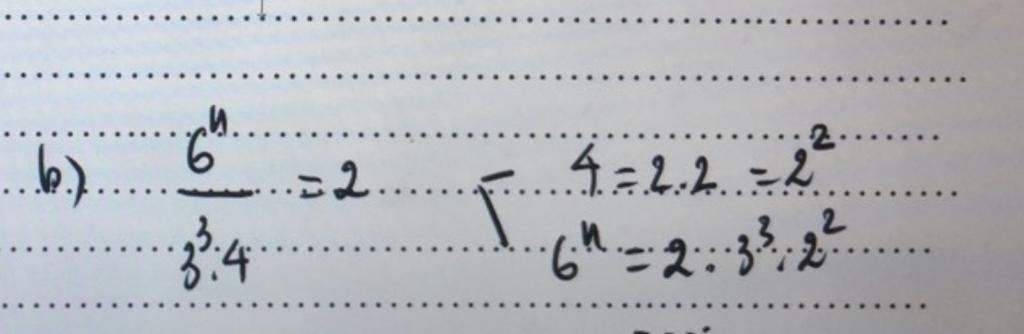 b) 6ⁿ / 3³.4 = 2
4 = 2.2 = 2²
6ⁿ = 2 . 3³ . 2²